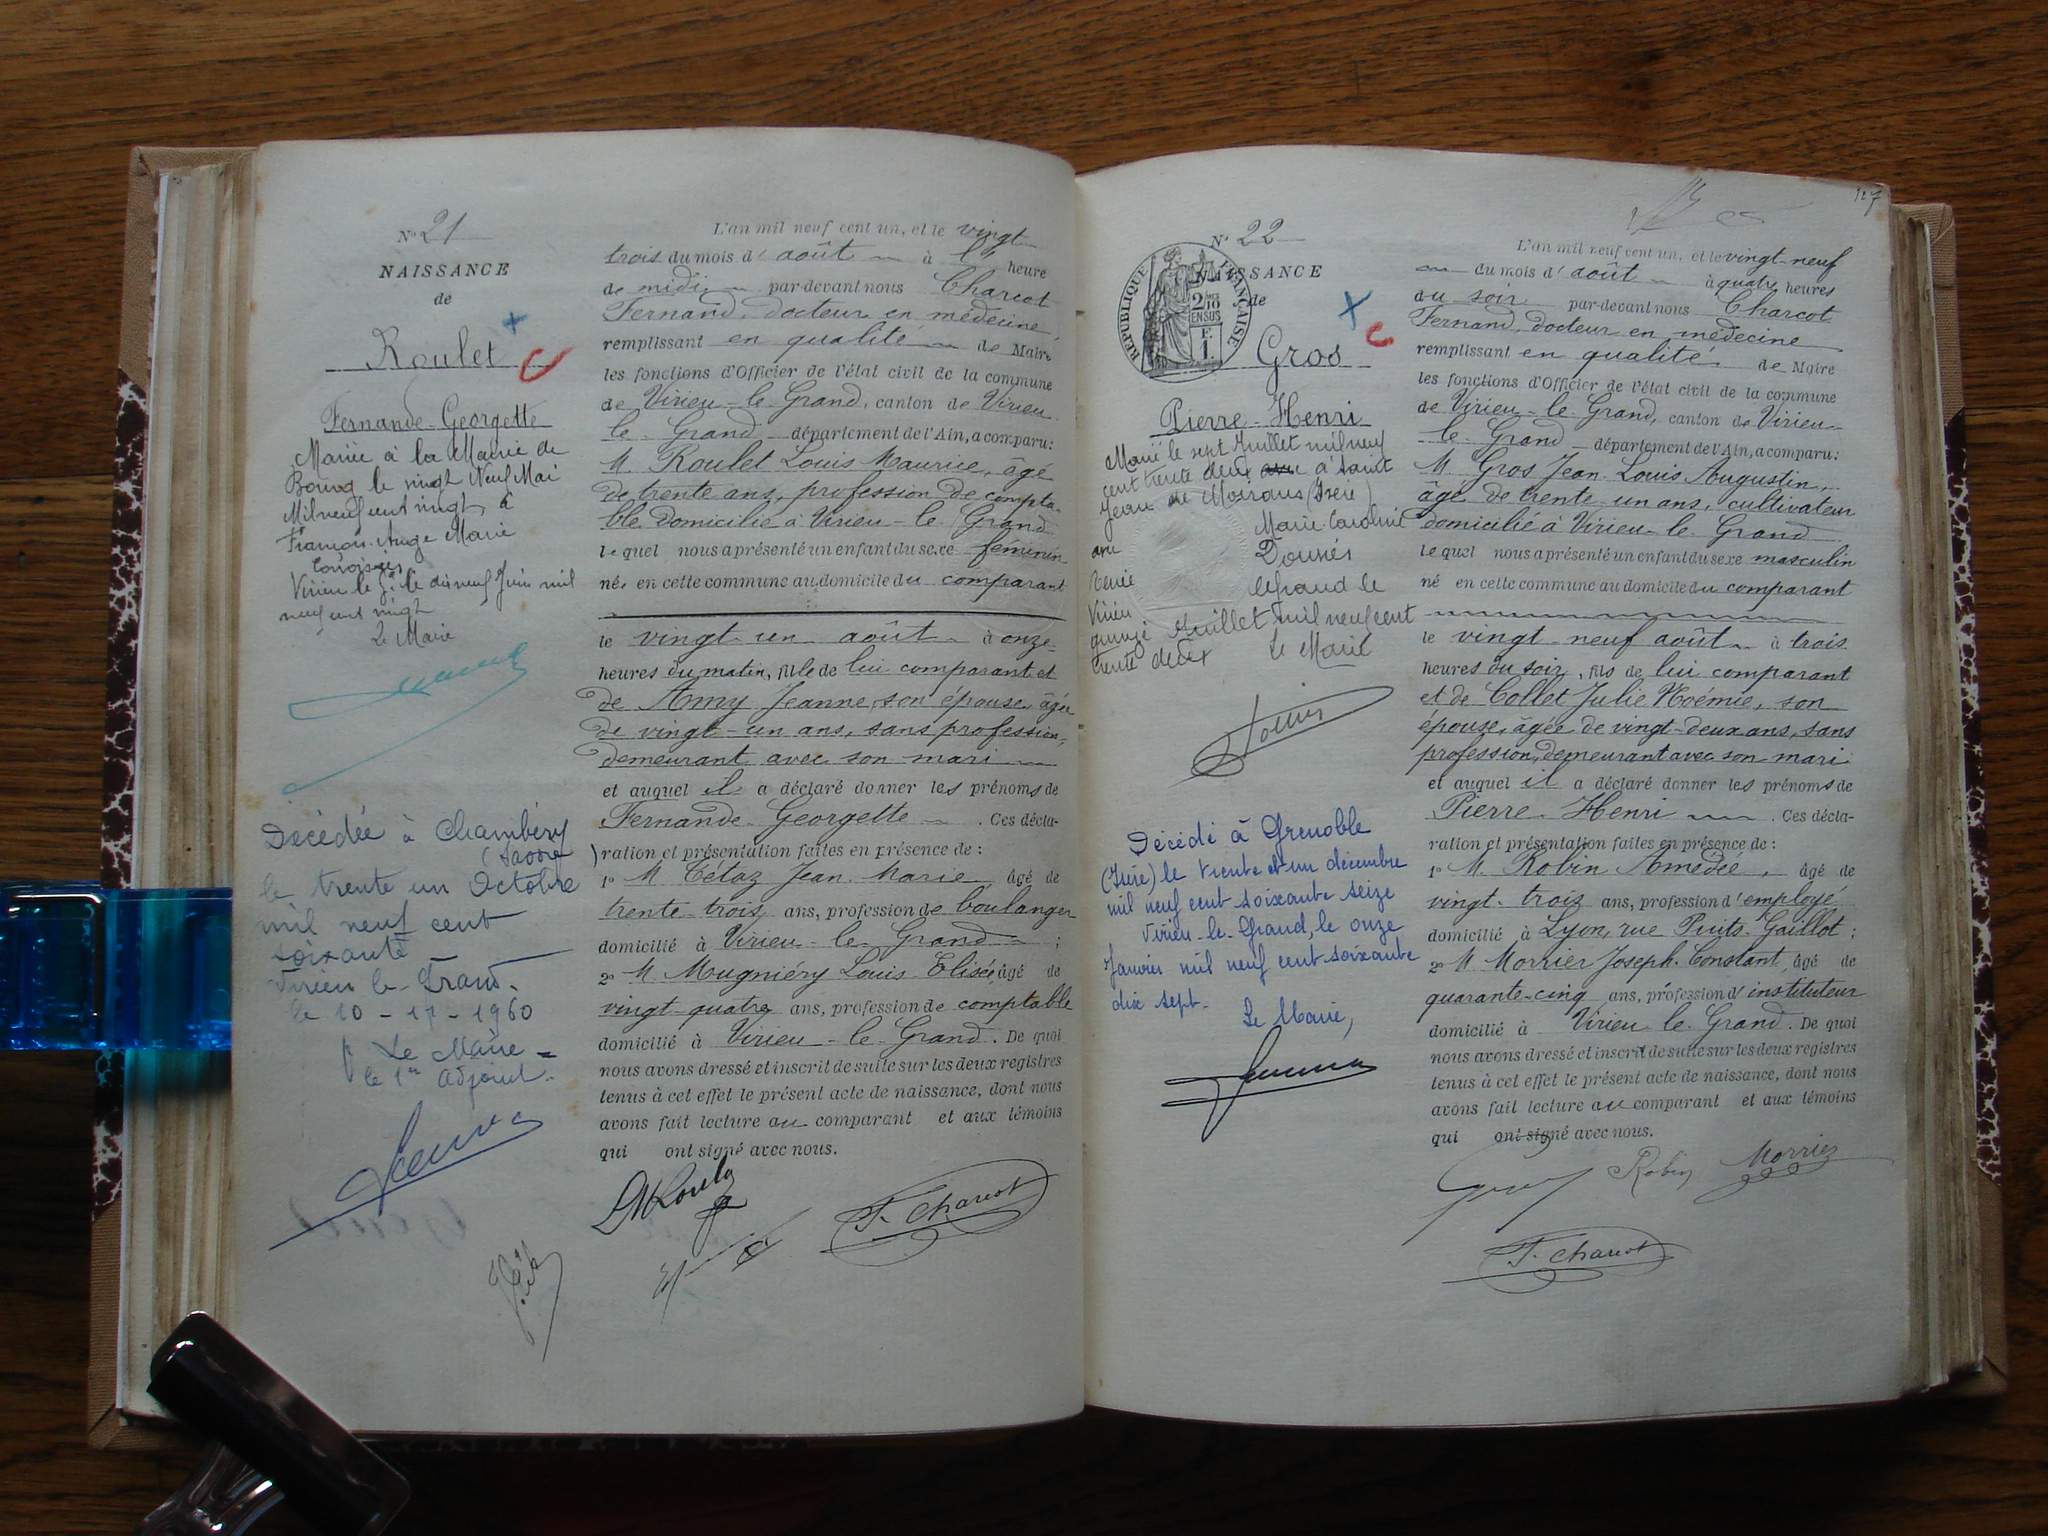 N° 21
NAISSANCE
de
Roulet
Fernande Georgette
Mariée à la Mairie de
Bourg le vingt Neuf Mai
Mil neuf cent vingt, à
François Ange Marie
Virieu le G. le dix neuf Juin mil
neuf cent vingt
Le Maire
Décédée à Chambéry
(Savoie)
le trente un Octobre
mil neuf cent
soixante
Virieu-le-Grand.
le 10 - 11 - 1960
P Le Maire =
le 1er Adjoint.
L'an mil neuf cent un, et le vingt
trois du mois d'août à heure
de midi par-devant nous Charcot
Fernand, docteur en médecine,
remplissant en qualité de Maire
les fonctions d'Officier de l'état civil de la commune
de Virieu-le-Grand, canton de Virieu-
le-Grand département de l'Ain, a comparu:
M. Roulet Louis Maurice, âgé
de trente ans, profession de compta-
ble domicilié à Virieu-le-Grand
lequel nous a présenté un enfant du sexe féminin
née en cette commune au domicile du comparant
le vingt-un août à onze
heures du matin, fille de lui comparant et
de Amy Jeanne, son épouse, âgée
de vingt-un ans, sans profession,
demeurant avec son mari
et auquel il a déclaré donner les prénoms de
Fernande Georgette . Ces décla-
ration et présentation faites en présence de :
1° M. Tétaz Jean Marie, âgé de
trente-trois ans, profession de boulanger
domicilié à Virieu-le-Grand ;
2° M. Mugniéry Louis Elisée, âgé de
vingt-quatre ans, profession de comptable
domicilié à Virieu-le-Grand. De quoi
nous avons dressé et inscrit de suite sur les deux registres
tenus à cet effet le présent acte de naissance, dont nous
avons fait lecture au comparant et aux témoins
qui ont signé avec nous.
F. Charcot
127
N° 22
NAISSANCE
de
RÉPUBLIQUE FRANÇAISE
2/10
EN SUS
F.
1.
Gros
Pierre Henri
Marié le sept Juillet mil neuf
cent trente deux à Saint
Jean de Moirans (Isère)
avec Marie Caroline
Renée
Virieu le Grand le
quinze Juillet mil neuf cent
trente deux Le Maire
Décédé à Grenoble
(Isère) le trente et un décembre
mil neuf cent soixante seize
Virieu-le-Grand, le onze
Janvier mil neuf cent soixante
dix sept.
Le Maire,
L'an mil neuf cent un, et le vingt-neuf
du mois d'août à quatre heures
du soir par-devant nous Charcot
Fernand, docteur en médecine
remplissant en qualité de Maire
les fonctions d'Officier de l'état civil de la commune
de Virieu-le-Grand, canton de Virieu-
le-Grand département de l'Ain, a comparu:
M. Gros Jean Louis Augustin,
âgé de trente-un ans, cultivateur
domicilié à Virieu-le-Grand
lequel nous a présenté un enfant du sexe masculin
né en cette commune au domicile du comparant
le vingt-neuf août à trois
heures du soir, fils de lui comparant
et de Collet Julie Noémie, son
épouse, âgée de vingt-deux ans, sans
profession, demeurant avec son mari
et auquel il a déclaré donner les prénoms de
Pierre Henri . Ces décla-
ration et présentation faites en présence de :
1° M. Robin Amédée, âgé de
vingt-trois ans, profession d'employé
domicilié à Lyon, rue Puits-Gaillot ;
2° M. Morrier Joseph Constant, âgé de
quarante-cinq ans, profession d'instituteur
domicilié à Virieu-le-Grand. De quoi
nous avons dressé et inscrit de suite sur les deux registres
tenus à cet effet le présent acte de naissance, dont nous
avons fait lecture au comparant et aux témoins
qui ont signé avec nous.
Gros Robin Morrier
F. Charcot